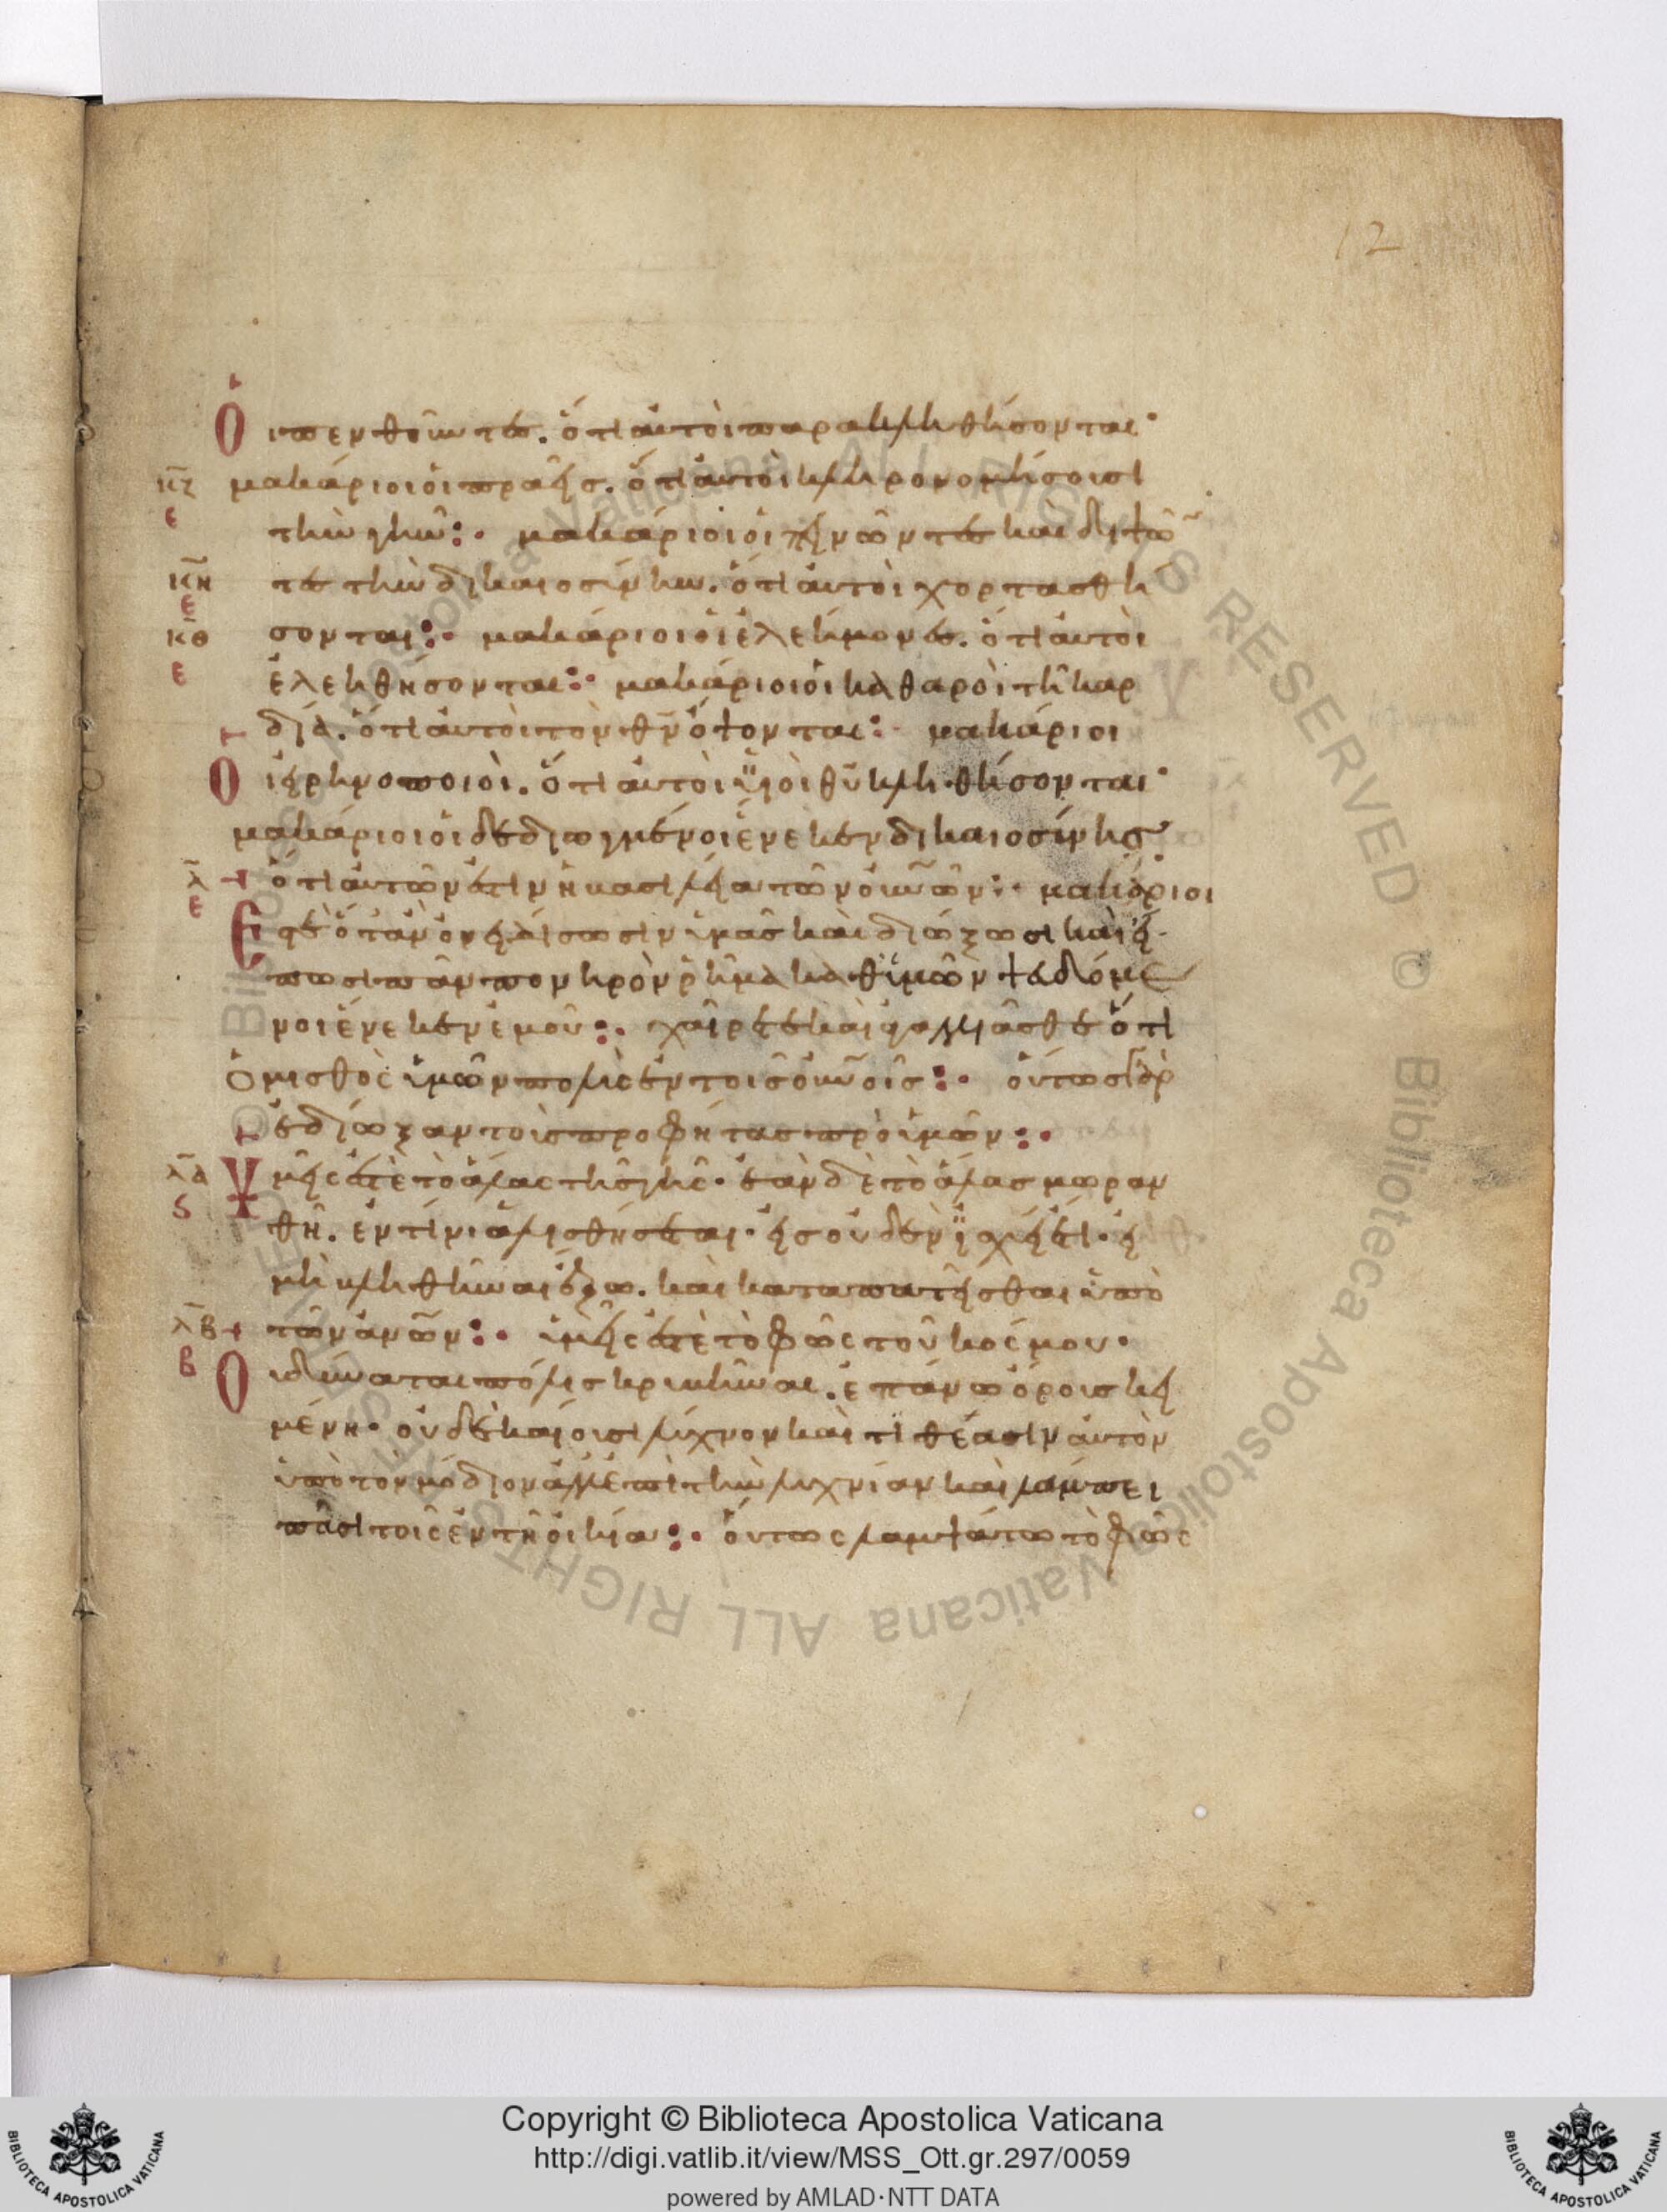 12
Οἱ πενθοῦντες. ὅτι αὐτοὶ παρακληθήσονται·
κζ μακάριοι οἱ πραεῖς. ὅτι αὐτοὶ κληρονομήσουσι
ε τὴν γῆν:· μακάριοι οἱ πεινῶντες καὶ διψῶ
κη τες τὴν δικαιοσύνην. ὅτι αὐτοὶ χορτασθή
ε
κθ σονται:· μακάριοι οἱ ἐλεήμονες. ὅτι αὐτοὶ
ε ἐλεηθήσονται:· μακάριοι οἱ καθαροὶ τῆ καρ
δία. ὅτι αὐτοὶ τὸν θν ὄψονται:· μακάριοι
Οἱ εἰρηνοποιοὶ. ὅτι αὐτοὶ ϋἱοὶ θυ κληθήσονται·
μακάριοι οἱ δεδιωγμένοι ἕνεκεν δικαιοσύνης
λ ὅτι αὐτῶν ἐστιν ἡ βασιλεία τῶν οὐνῶν:· μακάριοι
ε
Ἐστὲ ὅταν ὀνειδίσωσιν ὑμᾶς καὶ διώξωσι καὶ εἴ
πωσι πᾶν πονηρὸν ῥῆμα καθ ὑμῶν ψευδόμε
νοι ἕνεκεν ἐμοῦ:· χαίρετε καὶ ἀγαλλιᾶσθε ὅτι
ὁ μισθὸς ὑμῶν πολὺς ἐν τοῖς οὐνοῖς:· οὕτως γὰρ
ἐδίωξαν τοὺς προφήτας πρὸ ὑμῶν:·
λα Ὑμεῖς ἐστὲ τὸ ἅλας τῆς γῆς· ἐὰν δὲ τὸ ἅλας μωραν
ς θῆ. ἐν τίνι ἁλισθήσεται· εἰς οὐδὲν ϊσχύει ἔτι· εἰ
μὴ βληθῆναι ἔξω. καὶ καταπατεῖσθαι ὑπὸ
λβ τῶν ἀνῶν:· ὑμεῖς ἐστὲ τὸ φῶς τοῦ κόσμου·
β Οὐ δύναται πόλις κρυβῆναι. ἐπάνω ὄρους κει
μένη· οὐδὲ καίουσι λύχνον καὶ τιθέασιν αὐτὸν
ὑπὸ τὸν μόδιον ἀλλ ἐπὶ τὴν λυχνίαν καὶ λάμπει
πᾶσι τοῖς ἐν τῆ οἰκία:· οὕτως λαμψάτω τὸ φῶς
Copyright © Biblioteca Apostolica Vaticana
http://digi.vatlib.it/view/MSS_Ott.gr.297/0059
powered by AMLAD·NTT DATA
BIBLIOTECA APOSTOLICA VATICANA
BIBLIOTECA APOSTOLICA VATICANA
© Biblioteca Apostolica Vaticana ALL RIGHTS RESERVED © Biblioteca Apostolica Vaticana ALL RIGHTS RESERVED